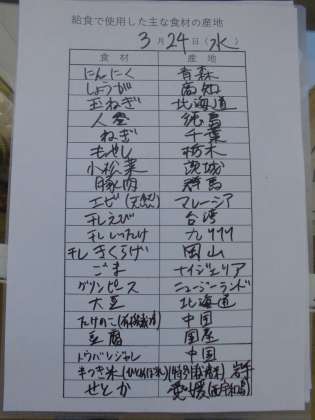 給食で使用した主な食材の産地
3月24日(水)
食材 産地
にんにく 青森
しょうが 高知
玉ねぎ 北海道
人参 徳島
ねぎ 千葉
もやし 栃木
小松菜 茨城
豚肉 群馬
エビ(天然) マレーシア
干しえび 台湾
干ししいたけ 九州
干しきくらげ 岡山
ごま ナイジェリア
グリンピース ニュージーランド
大豆 北海道
たけのこ 中国
豆腐 国産
トウバンジャン 中国
もつき米(ひとめぼれ)(特別栽培米) 岩手
せとか 愛媛